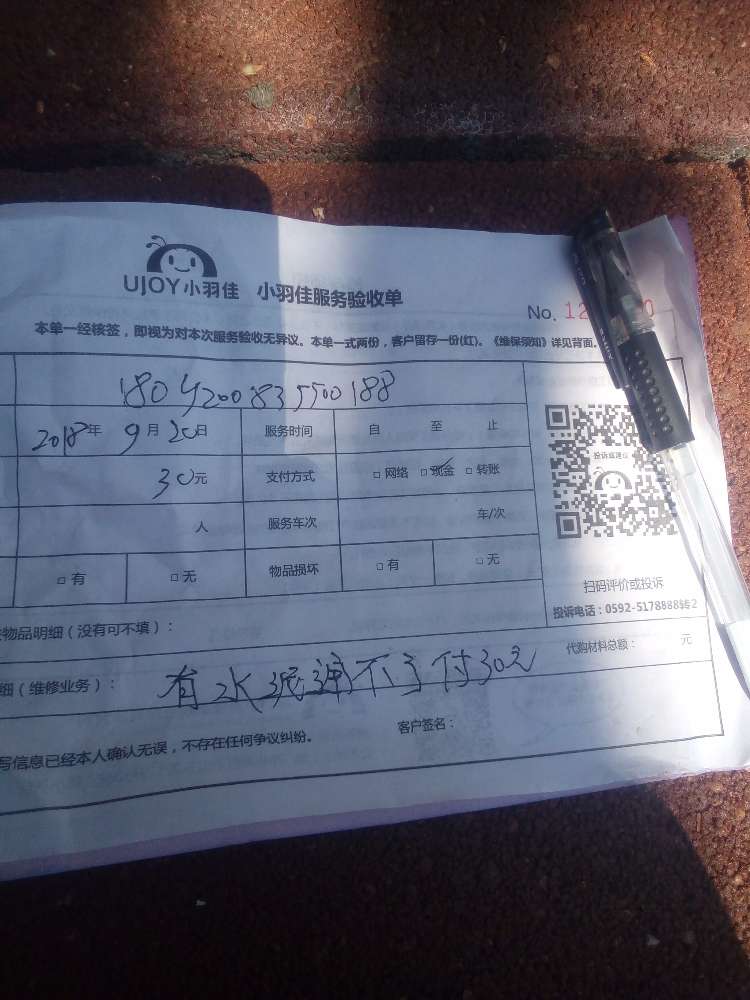 UJOY小羽佳 小羽佳服务验收单
No. 12 0
本单一经核签，即视为对本次服务验收无异议。本单一式两份，客户留存一份(红)。《维保须知》详见背面。
1804200835500188
2018年 9月 20日 服务时间 自 至 止
30元 支付方式 □网络 □现金 □转账
投诉或建议
人 服务车次 车/次
□有 □无 物品损坏 □有 □无
扫码评价或投诉
投诉电话：0592-5178888转2
物品明细（没有可不填）：
代购材料总额： 元
细（维修业务）： 有水泥通不了付30元
写信息已经本人确认无误，不存在任何争议纠纷。 客户签名：